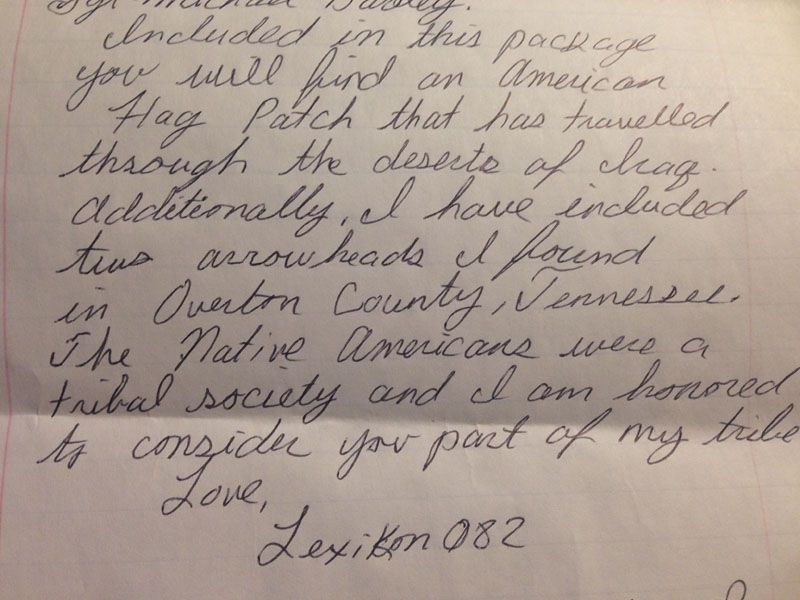 Sgt Michael
Included in this package
you will find an American
Flag Patch that has travelled
through the deserts of Iraq.
Additionally, I have included
two arrowheads I found
in Overton County, Tennessee.
The Native Americans were a
tribal society and I am honored
to consider you part of my tribe
Love,
Lexikon 082